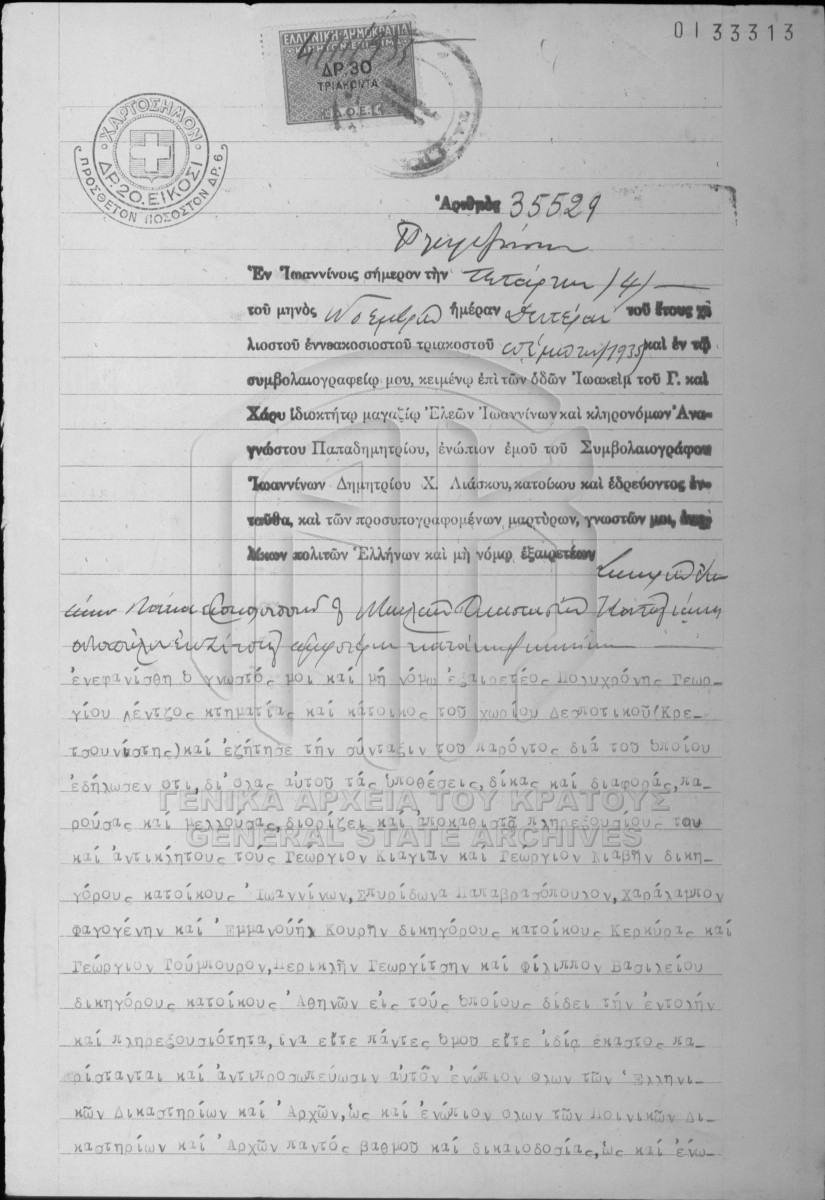 0133313
ΕΛΛΗΝΙΚΗ ΔΗΜΟΚΡΑΤΙΑ
ΔΡ.30
ΤΡΙΑΚΟΝΤΑ
ΧΑΡΤΟΣΗΜΟΝ
ΔΡ.20.ΕΙΚΟΣΙ
ΠΡΟΣΘΕΤΟΝ ΠΟΣΟΣΤΟΝ ΔΡ.6.
Ἀριθμὸς 35529
Ἐν Ἰωαννίνοις σήμερον τὴν τετάρτην /4/
τοῦ μηνὸς Νοεμβρίου ἡμέραν Δευτέραν τοῦ ἔτους χι
λιοστοῦ ἐννεακοσιοστοῦ τριακοστοῦ πέμπτου/1935 καὶ ἐν τῷ
συμβολαιογραφείῳ μου, κειμένῳ ἐπὶ τῶν ὁδῶν Ἰωακεὶμ τοῦ Γ. καὶ
Χάρυ ἰδιοκτήτῳ μαγαζίῳ Ἐλεῶν Ἰωαννίνων καὶ κληρονόμων Ἀνα-
γνώστου Παπαδημητρίου, ἐνώπιον ἐμοῦ τοῦ Συμβολαιογράφου
Ἰωαννίνων Δημητρίου Χ. Λιάσκου, κατοίκου καὶ ἑδρεύοντος ἐν-
ταῦθα, καὶ τῶν προσυπογραφομένων μαρτύρων, γνωστῶν μοι, ἐνηλ
λίκων πολιτῶν Ἑλλήνων καὶ μὴ νόμῳ ἐξαιρετέων
ἐνεφανίσθη ὁ γνωστός μοι καί μή νόμω ἐξαιρετέος Πολυχρόνης Γεωρ-
γίου Λέντζος κτηματίας καί κάτοικος τοῦ χωρίου Δεσποτικοῦ(Κρε-
τσουνίστης)καί ἐζήτησε τήν σύνταξιν τοῦ παρόντος διά τοῦ ὁποίου
ἐδήλωσεν ὅτι,δι'ὅλας αὐτοῦ τάς ὑποθέσεις,δίκας καί διαφοράς,πα-
ρούσας καί μελλούσας,διορίζει καί ἀποκαθιστᾶ πληρεξουσίους του
ΓΕΝΙΚΑ ΑΡΧΕΙΑ ΤΟΥ ΚΡΑΤΟΥΣ
GENERAL STATE ARCHIVES
καί ἀντικλήτους τούς Γεώργιον Κιαγιᾶν καί Γεώργιον Νιαβῆν δικη-
γόρους κατοίκους Ἰωαννίνων,Σπυρίδωνα Παπαβρασόπουλον,Χαράλαμπον
Φαγογένην καί Ἐμμανουήλ Κουρῆν δικηγόρους κατοίκους Κερκύρας καί
Γεώργιον Τούμπουρον,Περικλῆν Γεωργίτσην καί Φίλιππον Βασιλείου
δικηγόρους κατοίκους Ἀθηνῶν εἰς τούς ὁποίους δίδει τήν ἐντολήν
καί πληρεξουσιότητα,ἵνα εἴτε πάντες ὁμοῦ εἴτε ἰδίᾳ ἕκαστος πα-
ρίστανται καί ἀντιπροσωπεύωσιν αὐτόν ἐνώπιον ὅλων τῶν Ἑλληνι-
κῶν Δικαστηρίων καί Ἀρχῶν,ὡς καί ἐνώπιον ὅλων τῶν Ποινικῶν Δι-
καστηρίων καί Ἀρχῶν παντός βαθμοῦ καί δικαιοδοσίας,ὡς καί ἐνώ-